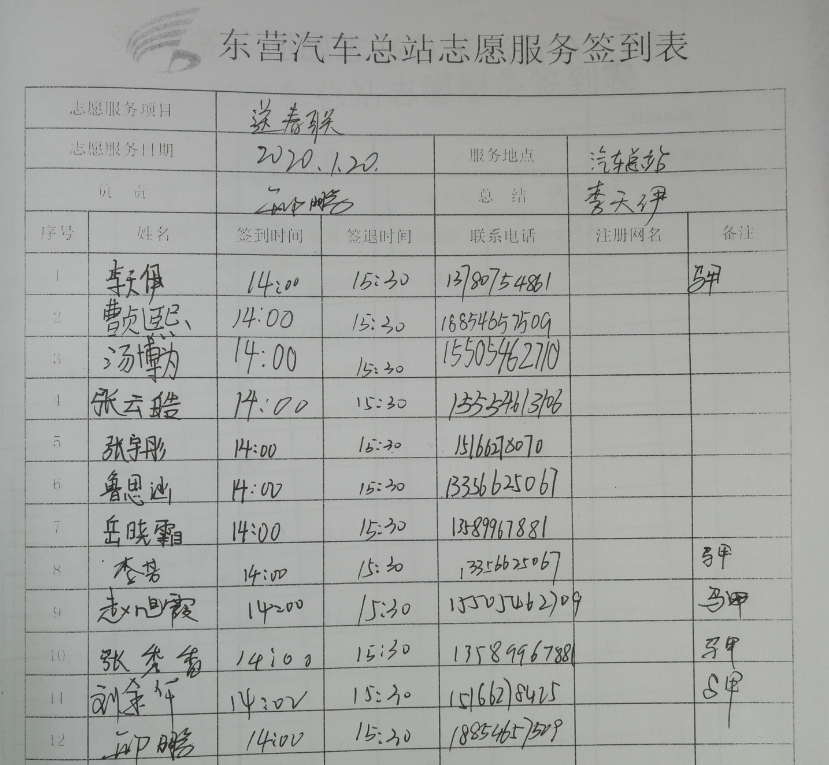 东营汽车总站志愿服务签到表
志愿服务项目 送春联
志愿服务日期 2020.1.20. 服务地点 汽车总站
负 责 邱鹏 总 结 李天伊
序号 姓名 签到时间 签退时间 联系电话 注册网名 备注
1 李天伊 14:00 15:30 13780754861 马甲
2 曹贞熙 14:00 15:30 18854657509
3 汤博为 14:00 15:30 15505462710
4 张云皓 14:00 15:30 15554613106
5 张宇彤 14:00 15:30 15166278070
6 鲁思迪 14:00 15:30 13356625067
7 岳晓霜 14:00 15:30 13589967881
8 李芳 14:00 15:30 13356625067 马甲
9 赵旭霞 14:00 15:30 15505462709 马甲
10 张秀香 14:00 15:30 13589967881 马甲
11 14:00 15:30 15166278425 马甲
12 邱鹏 14:00 15:30 18854657509